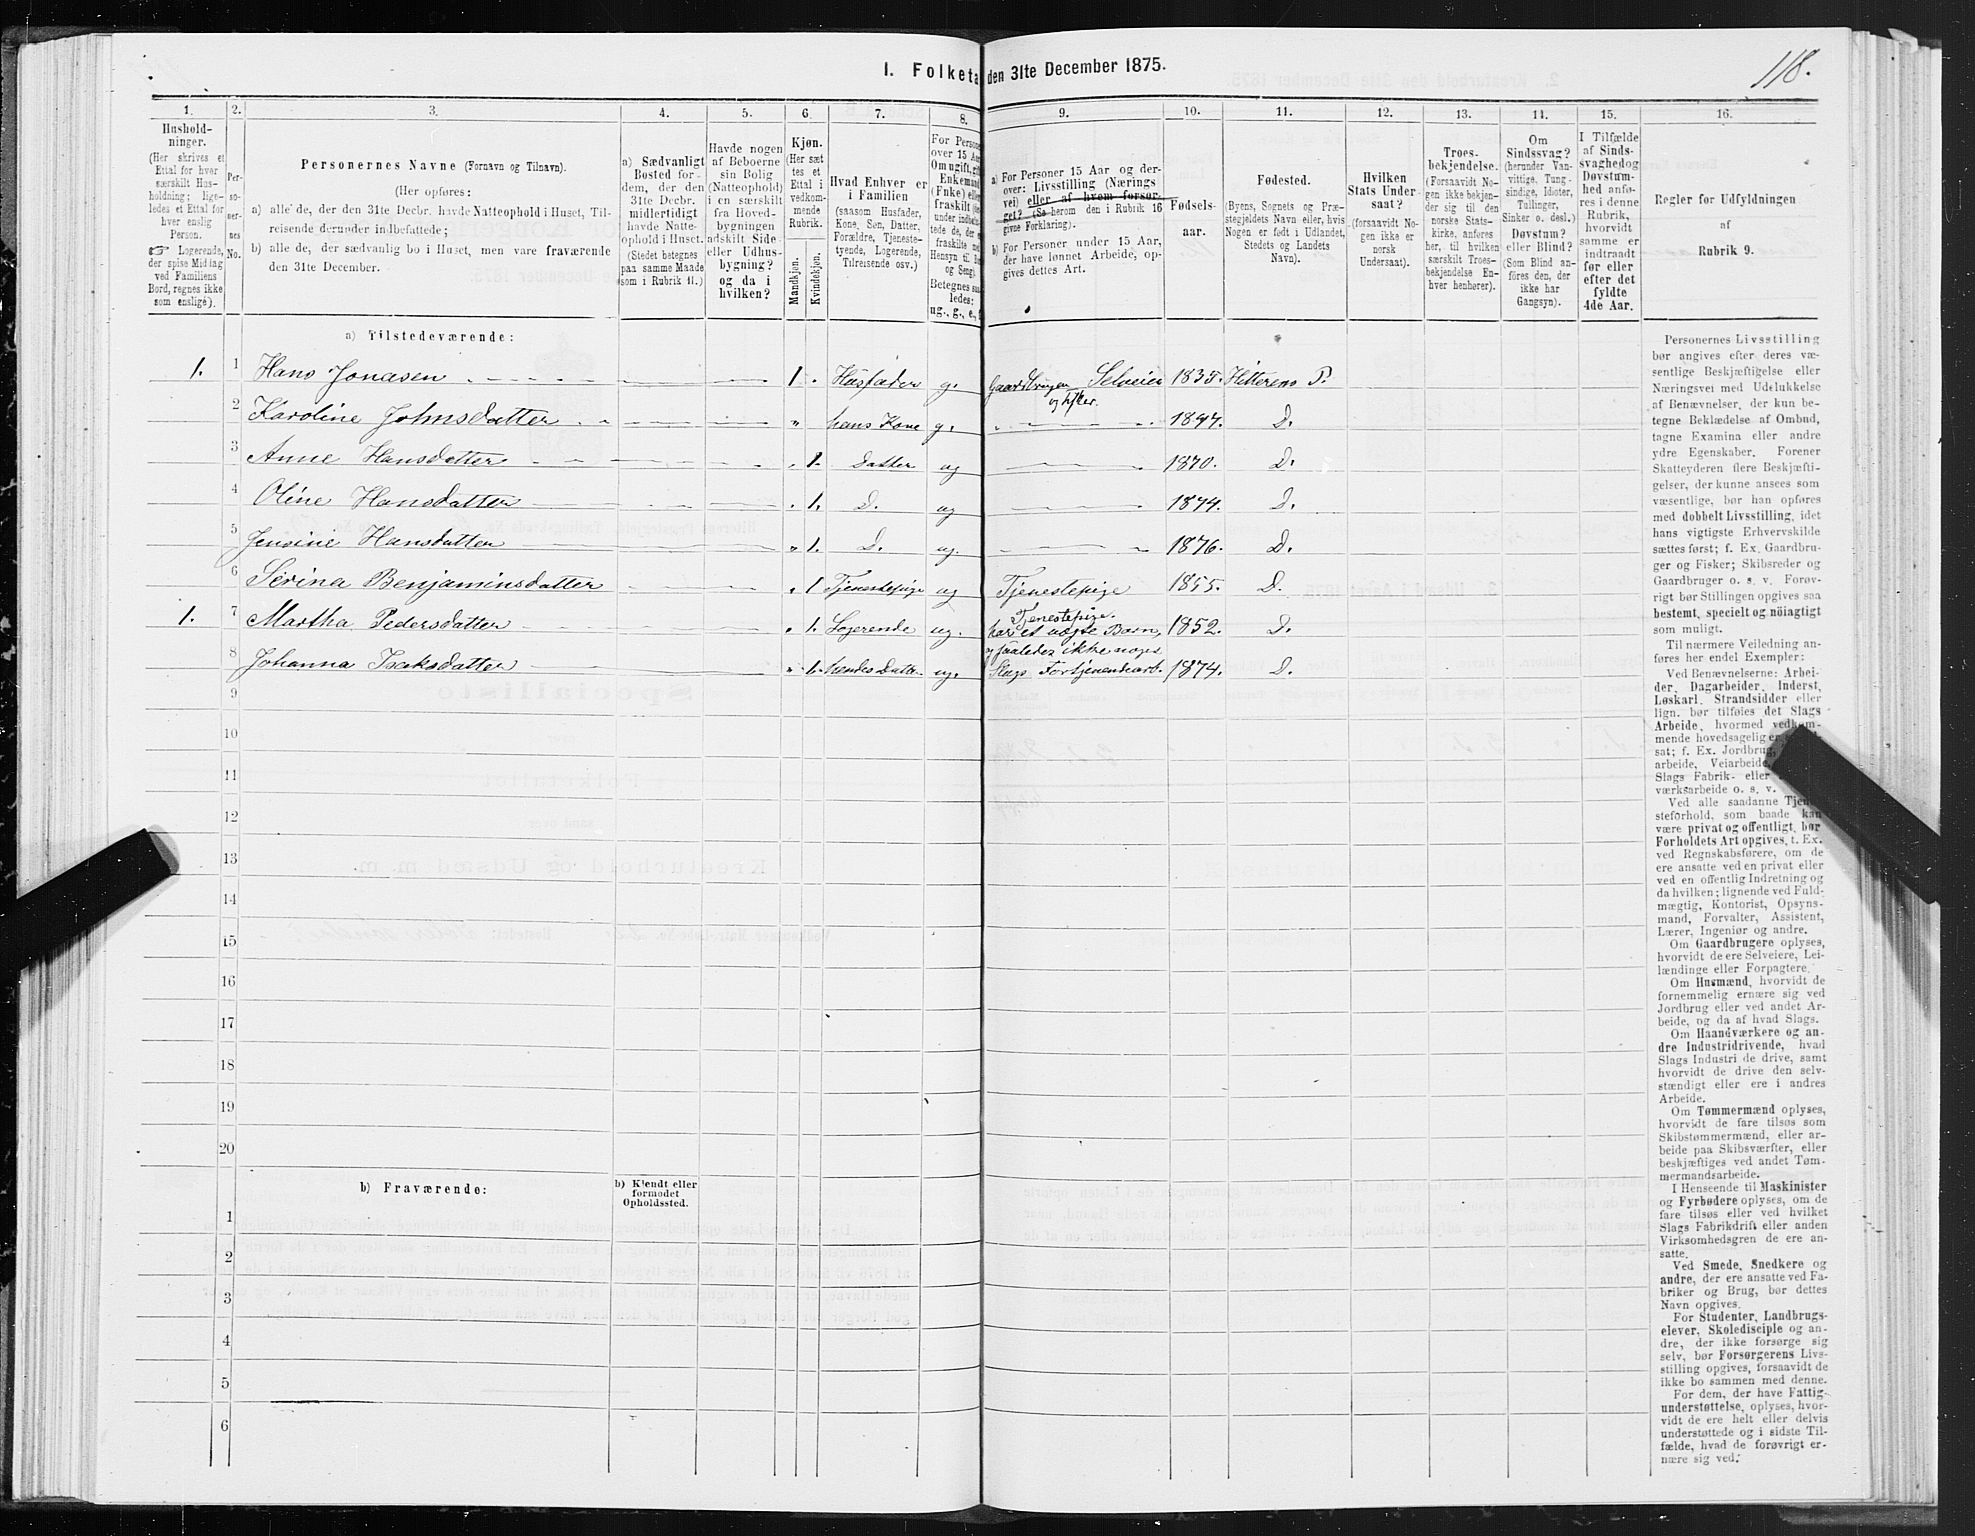 118.
I. Folketa den 31te December 1875.
1. 2. 3. 4. 5. 6. 7. 8. 9. 10. 11. 12. 13. 14. 15. 16.
Hushold-
ninger.
(Her skrives et
Ettal for hver
særskilt Hus-
holdning; lige-
ledes et Ettal for
hver enslig
Person.
☞ Logerende,
der spise Middag
ved Familiens
Bord, regnes ikke
som enslige).
Per-
so-
ner-
nes
No.
Personernes Navne (Fornavn og Tilnavn).
(Her opføres:
a) alle de, der den 31te Decbr. havde Natteophold i Huset, Til-
reisende derunder indbefattede;
b) alle de, der sædvanlig bo i Huset, men vare fraværende
den 31te December.
a) Sædvanligt
Bosted for-
dem, der den
31te Decbr.
midlertidigt
havde Natte-
ophold i Huset.
(Stedet betegnes
paa samme Maade
som i Rubrik 11.)
Havde nogen
af Beboerne
sin Bolig
(Natteophold)
i en særskilt
fra Hoved-
bygningen
adskilt Side-
eller Udhus-
bygning?
og da i
hvilken?
Kjøn.
(Her sæt-
tes et
Ettal i
vedkom-
mende
Rubrik.
Mandkjøn.
Kvindekjøn.
Hvad Enhver er
i Familien
(saasom Husfader,
Kone, Søn, Datter,
Forældre, Tjeneste-
tyende, Logerende,
Tilreisende osv.)
For Person
over 15 Aa
Om ugift, gif
Enkemand
(Enke) elle
fraskilt (der
under indbefa
tede de, der e
fraskilte med
Hensyn til Bo
og Seng).
Betegnes saa
ledes:
ug., g., e., f.
a) For Personer 15 Aar og der-
over: Livsstilling (Nærings
vei) eller af hvem forsør-
get? (Se herom den i Rubrik 16
givne Forklaring).
b) For Personer under 15 Aar,
der have lønnet Arbeide, op-
gives dettes Art.
Fødsels-
aar.
Fødested.
(Byens, Sognets og Præ-
stegjeldets Navn eller, hvis
Nogen er født i Udlandet,
Stedets og Landets
Navn).
Hvilken
Stats Under-
saat?
(forsaavidt No-
gen ikke er
norsk
Undersaat).
Troes-
bekjendelse.
(Forsaavidt No-
gen ikke bekjen-
der sig til den
norske Stats-
kirke, anføres
her, til hvilken
særskilt Troes-
bekjendelse En-
hver henhører).
Om
Sindssvag?
(herunder Van-
vittige, Tung-
sindige, Idioter,
Tullinger,
Sinker o. desl.)
Døvstum?
eller Blind?
(Som Blind an-
føres den, der
ikke har
Gangsyn).
I Tilfælde
af Sinds-
svaghed og
Døvstum-
hed anfø-
res i denne
Rubrik,
hvorvidt
samme er
indtraadt
før eller
efter det
fyldte
4de Aar.
Regler for Udfyldningen
af
Rubrik 9.
a) Tilstedeværende:
1. 1 Hans Jonasen 1. Husfader g. Gaardbruger Selveier og Fisker. 1835. Hitterens P.
2 Karoline Johnsdatter " hans Kone g. 1847. D.
3 Anne Hansdatter 1. Datter ug 1870. D.
4 Oline Hansdatter 1. D. ug 1874. D.
5 Jensine Hansdatter " 1. D. ug. 1876. D.
6 Serina Benjaminsdatter 1 Tjenestepige ug Tjenestepige 1855. D.
1. 7 Martha Pedersdatter 1. Logerende ug. Tjenestepige. har et uægte Barn, 1852. D.
og saaledes ikke noget
8 Johanna Isaksdatter " 1. hendes Datter ug. Slags Fortjenendearb. 1874. D.
9
10
11
12
13
14
15
16
17
18
19
20
b) Fraværende:
b) Kjendt eller
formodet
Opholdssted.
1
2
3
4
5
6
Personernes Livsstilling
bør angives efter deres væ-
sentlige Beskjæftigelse eller
Næringsvei med Udelukkelse
af Benævnelser, der kun be-
tegne Beklædelse af Ombud,
tagne Examina eller andre
ydre Egenskaber. Forener
Skatteyderen flere Beskjæfti-
gelser, der kunne ansees som
væsentlige, bør han opføres
med dobbelt Livsstilling, idet
hans vigtigste Erhvervskilde
sættes først; f. Ex. Gaardbru-
ger og Fisker; Skibsreder og
Gaardbruger o. s. v. Forøv-
rigt bør Stillingen opgives saa
bestemt, specielt og nöiagtigt
som muligt.
Til nærmere Veiledning an-
føres her endel Exempler:
Ved Benævnelserne: Arbei-
der, Dagarbeider, Inderst,
Løskarl, Strandsidder eller
lign. bør tilføies det Slags
Arbeide, hvormed vedkom-
mende hovedsagelig er
sat; f. Ex. Jordbrug,
arbeide, Veiarbeide,
Slags Fabrik- eller
værksarbeide o. s. v.
Ved alle saadanne Tjene-
steforhold, som baade kan
være privat og offentligt, bør
Forholdets Art opgives, t. Ex.
ved Regnskabsførere, om de
ere ansatte ved en privat eller
ved en offentlig Indretning og
da hvilken; lignende ved Fuld-
mægtig, Kontorist, Opsyns-
mand, Forvalter, Assistent,
Lærer, Ingeniør og andre.
Om Gaardbrugere oplyses,
hvorvidt de ere Selveiere, Lei-
lændinge eller Forpagtere.
Om Husmænd, hvorvidt de
fornemmelig ernære sig ved
Jordbrug eller ved andet Ar-
beide, og da af hvad Slags.
Om Haandværkere og an-
dre Industridrivende, hvad
Slags Industri de drive, samt
hvorvidt de drive den selv-
stændigt eller ere i andres
Arbeide.
Om Tømmermænd oplyses,
hvorvidt de fare tilsøs som
Skibstømmermænd, eller ar-
beide paa Skibsværfter, eller
beskjæftiges ved andet Tøm-
mermandsarbeide.
I Henseende til Maskinister
og Fyrbødere oplyses, om de
fare tilsøs eller ved hvilket
Slags Fabrikdrift eller anden
Virksomhedsgren de ere an-
satte.
Ved Smede, Snedkere og
andre, der ere ansatte ved Fa-
briker og Brug, bør dettes
Navn opgives.
For Studenter, Landbrugs-
elever, Skoledisciple og an-
dre, der ikke forsørge sig
selv, bør Forsørgerens Livs-
stilling opgives, forsaavidt de
ikke bo sammen med denne.
For dem, der have Fattig-
understøttelse, oplyses, hvor-
vidt de ere helt eller delvis
understøttede og i sidste Til-
fælde, hvad de forøvrigt er-
nære sig ved.